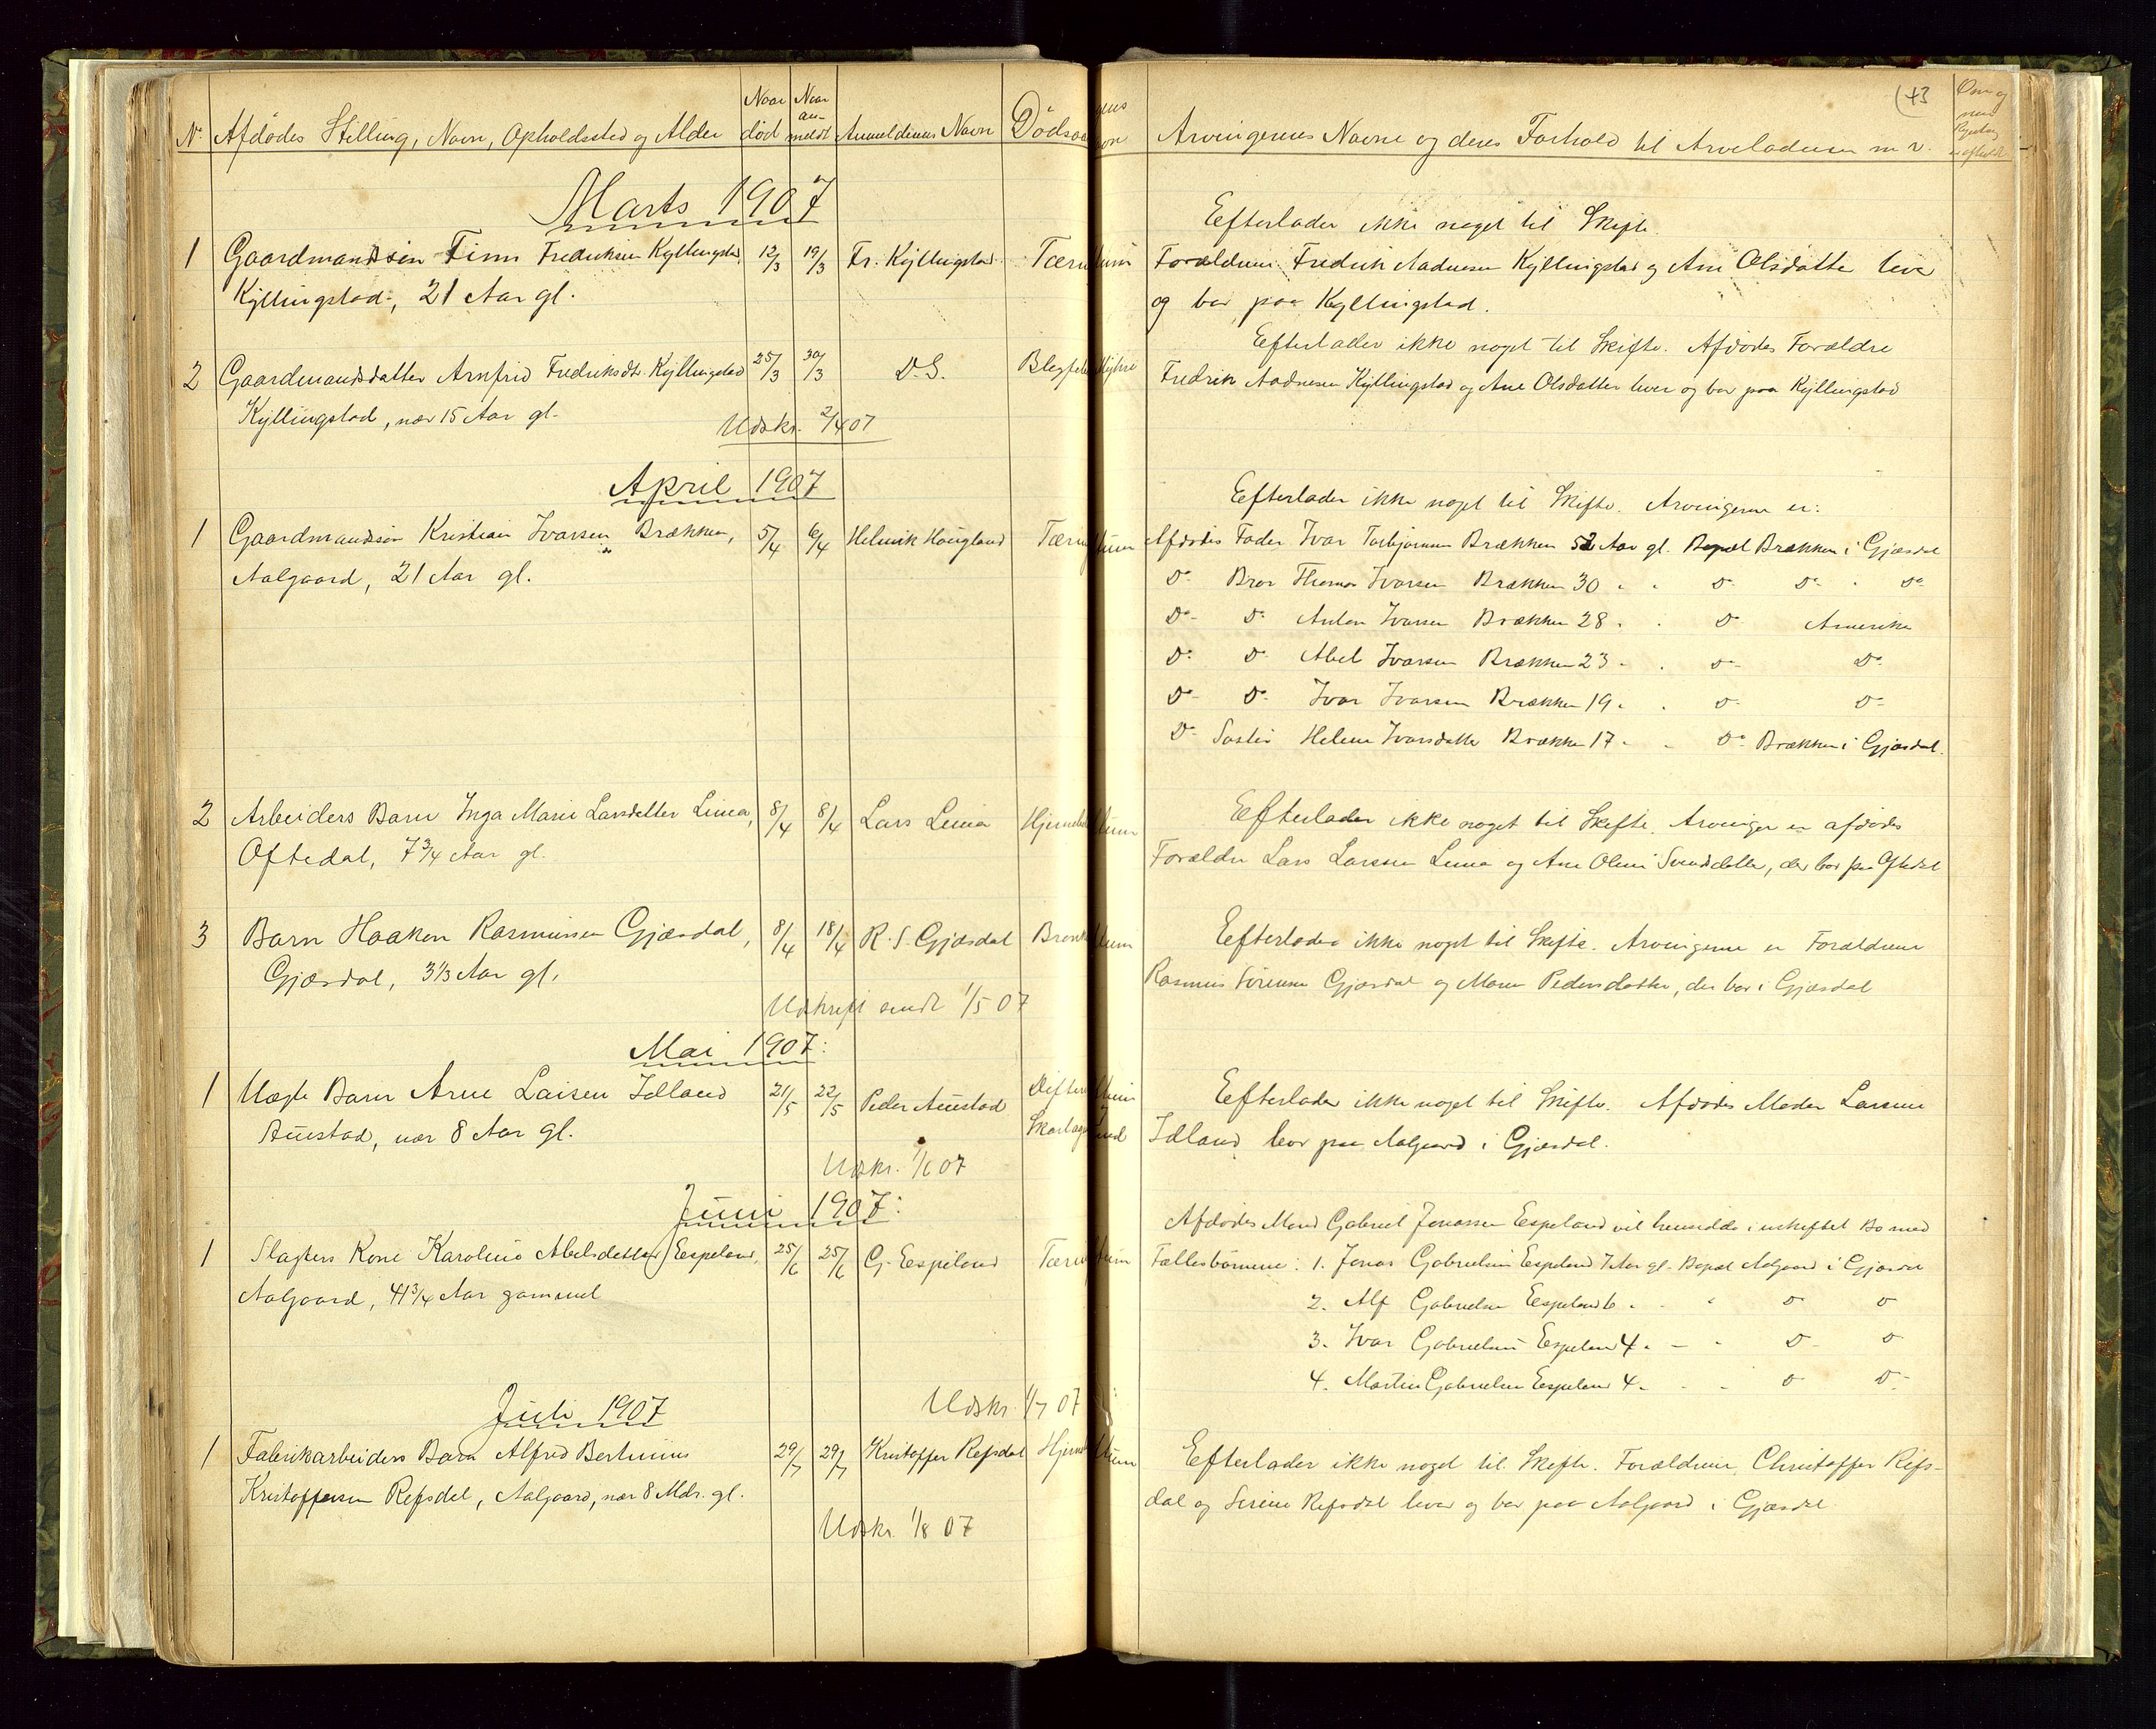 No. Afdødes Stilling, Navn, Opholdssted og Alder Naar død Naar anmeldt Anmelderens Navn Dødsaa
Marts 1907
1 Gaardmandssøn Finn Fredriksen Kyllingstad, 12/3 19/3 Fr. Kyllingstad. Tærin
Kyllingstad, 21 Aar gl.
2 Gaardmandsdatter Arnfrid Fredriksdtr. Kyllingstad 25/3 30/3 D.S.
Kyllingstad, nær 15 Aar gl.
Udskr. 2/4 07
April 1907
1 Gaardmandssøn Kristian Ivarsen Brækken, 5/4 6/4 Helmik Haugland Tærin
Aalgaard, 21 Aar gl.
2 Arbeiders Barn Inga Marie Larsdatter Lima, 8/4 8/4 Lars Lima Hjerneb
Oftedal, 7 3/4 Aar gl.
3 Barn Haakon Rasmussen Gjæsdal, 8/4 18/4 R. S. Gjæsdal Bronk
Gjæsdal, 3 1/3 Aar gl.
Udskrift sendt 1/5 07
Mai 1907:
1 Uægte Barn Arne Laisen Idland 21/5 22/5 Peder Auestad Difter
Auestad, nær 8 Aar gl. Skarlag
Udskr. 1/6 07
Juni 1907:
1 Slagters Kone Karoline Abelsdatter Espeland, 25/6 25/6 G. Espeland Tærin
Aalgaard, 41 3/4 Aar gammel
Udskr. 1/7 07
Juli 1907
1 Fabrikarbeiders Barn Alfred Bertinius 29/7 29/7 Kristoffer Refsdal Hjerneb
Kristoffersen Refsdal, Aalgaard, nær 8 Mdr. gl.
Udskr. 1/8 07
(43
Arvingernes Navne og deres Forhold til Arveladeren m. v.
Efterlader ikke noget til Skifte.
Forældrene Fredrik Aadnesen Kyllingstad og Ane Olsdatter lever
og bor paa Kyllingstad.
Efterlader ikke noget til Skifte. Afdødes Forældre
Fredrik Aadnesen Kyllingstad og Ane Olsdatter lever og bor paa Kyllingstad
Efterlader ikke noget til Skifte. Arvingerne er:
Afdødes Fader Ivar Torbjørnsen Brækken 52 Aar gl. Bopæl Brækken i Gjæsdal
Do Bror Thomas Ivarsen Brækken 30 " " Do Do " Do
Do Do Anton Ivarsen Brækken 28 " " Do Amerika
Do Do Abel Ivarsen Brækken 23 " " Do Do
Do Do Ivar Ivarsen Brækken 19 " " Do Do
Do Søster Helene Ivarsdatter Brækken 17 " " Do Brækken i Gjæsdal.
Efterlader ikke noget til Skifte. Arvinger er afdødes
Forældre Lars Larsen Lima og Ane Oline Svendsdatter, der bor paa Oftedal
Efterlader ikke noget til Skifte. Arvingerne er Forældrene
Rasmus Sørensen Gjæsdal og Maren Pedersdatter, der bor i Gjæsdal
Efterlader ikke noget til Skifte. Afdødes Moder Larsine
Idland bor paa Aalgaard i Gjæsdal.
Afdødes Mand Gabriel Jonassen Espeland vil hensidde i uskiftet Bo med
Fællesbørnene: 1. Jonas Gabrielsen Espeland 7 Aar gl. Bopæl Aalgaard i Gjæsdal
2. Alf Gabrielsen Espeland 6 " " Do Do
3. Ivar Gabrielsen Espeland 4 " " Do Do
4. Martin Gabrielsen Espeland 4 " " Do Do
Efterlader ikke noget til Skifte. Forældrene Christoffer Refs-
dal og Serine Refsdal lever og bor paa Aalgaard i Gjæsdal